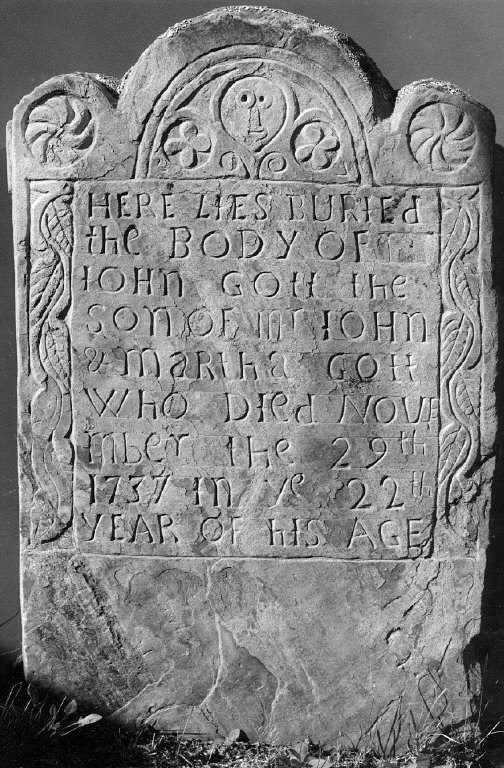 HERE LIES BURIEd
the BODY OF
IOHN GOTT the
SON OF mr IOHN
& martha GOTT
WHO DIEd NOVE
mber the 29th
1737 In ye 22th
YEAR OF HIS AGE